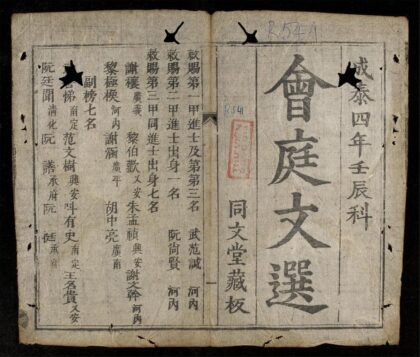 成泰四年壬辰科
會庭文選
同文堂藏板
R.541
敕賜第一甲進士及第第三名 武范諴 河內
敕賜第二甲進士出身一名 阮尚賢 河內
敕賜第三甲同進士出身七名
謝 廣義 黎伯歡 又安 朱孟禎 興安 謝文幹 河內
黎 河內 謝 廣平 胡中亮 廣南
副榜七名
悌 南定 范文樹 興安 有史 南定 王名貴 又安
阮廷聞 清化 阮 承府 阮